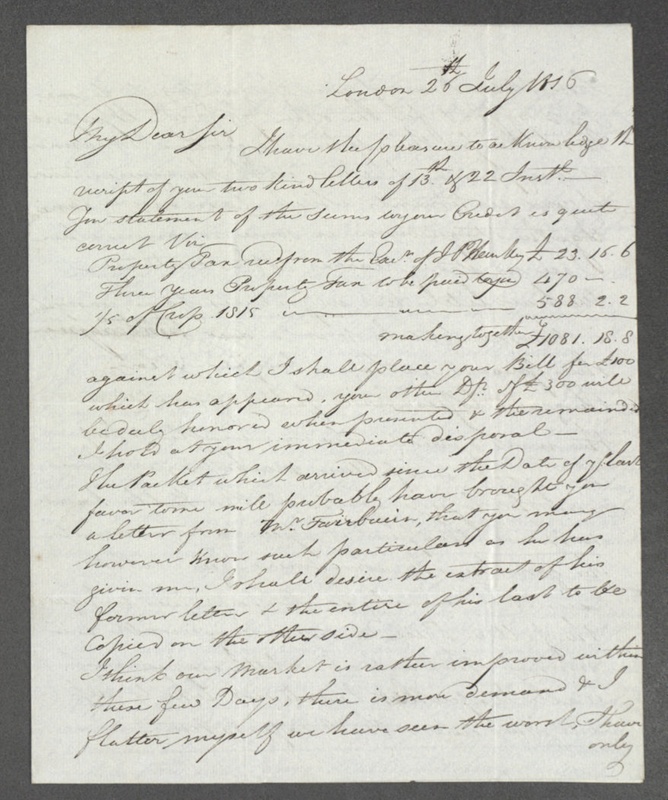 London 26th July 1816
My Dear Sir
I have the pleasure to acknowledge th
receipt of your two kind letters of 13th & 22 Inst
Your statement of the sums to your Credit is quite
correct Viz
Property Tax recd from the Exrs of J P Hankey £ 23. 16. 6
Three years Property Tax to be paid 470 —.
1/5 of Crop 1815 — 588. 2. 2
making together £1081. 18. 8
against which I shall place your Bill for £100
which has appeared, your other Dft. of £300 will
be duly honored when presented & the remainder
I hold at your immediate disposal —
The Packet which arrived since the Date of yr last
favor to me will probably have brought you
a letter from Mr. Fairbairn, that you may
however know such particulars as he has
given me, I shall desire the extract of his
former letter & the entire of his last to be
Copied on the other side —
I think our Market is rather improved within
these few Days, there is more demand & I
flatter myself we have seen the worst, I have
only